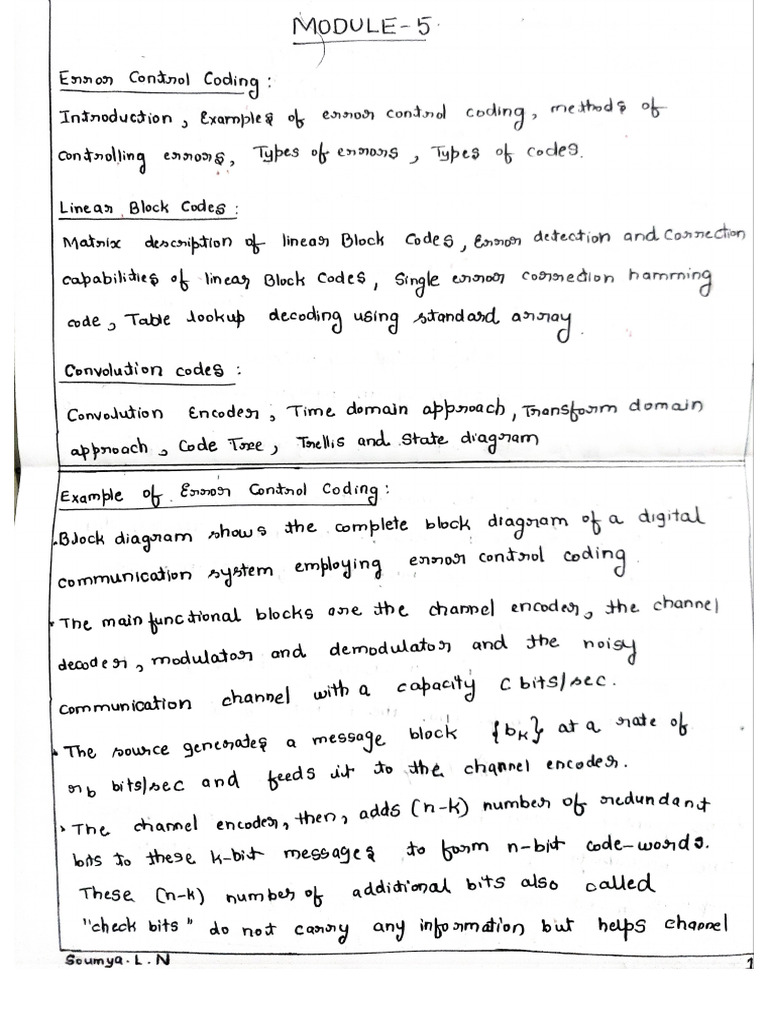 MODULE-5
Error Control Coding :
Introduction, Examples of error control coding, methods of
controlling errors, Types of errors, Types of codes.
Linear Block Codes :
Matrix description of linear Block Codes, Error detection and Correction
capabilities of linear Block Codes, Single error correction hamming
code, Table lookup decoding using standard array.
Convolution codes :
Convolution Encoder, Time domain approach, Transform domain
approach, Code Tree, Trellis and State diagram
Example of Error Control Coding :
.Block diagram shows the complete block diagram of a digital
communication system employing error control coding.
• The main functional blocks are the channel encoder, the channel
decoder, modulator and demodulator and the noisy
communication channel with a capacity C bits/sec.
• The source generates a message block {bk} at a rate of
rb bits/sec and feeds it to the channel encoder.
• The channel encoder, then, adds (n-k) number of redundant
bits to these k-bit messages to form n-bit code-words.
These (n-k) number of additional bits also called
"check bits" do not carry any information but helps channel
Soumya. L. N
1